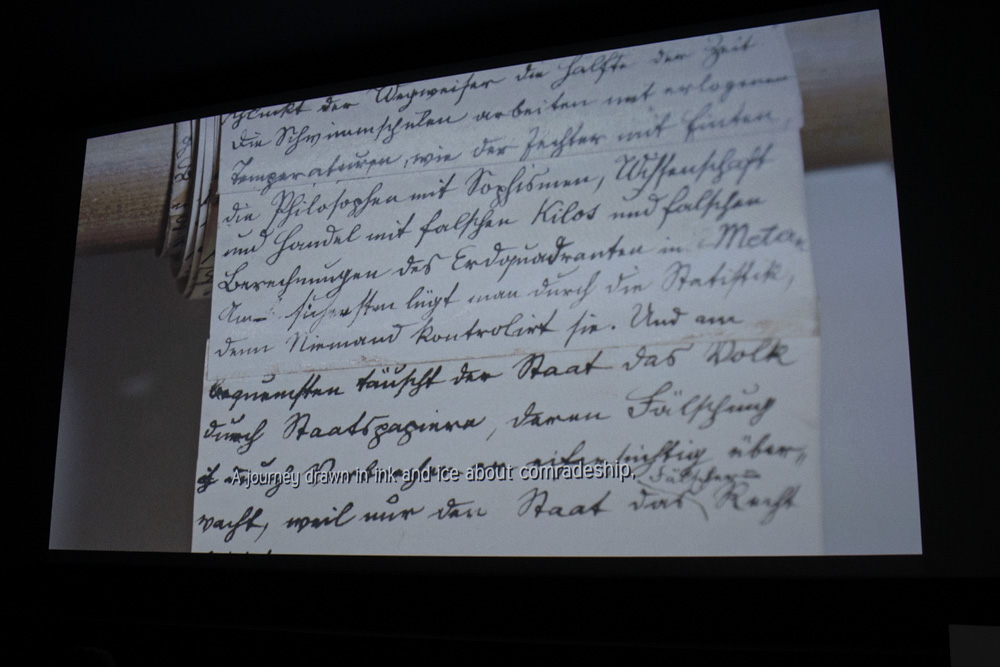 der Wegweiser die Hälfte der Zeit
die Schwimmschulen arbeiten mit erlogenen
Temperaturen, wie der Fechter mit Finten,
die Philosophen mit Sophismen, Wissenschaft
und Handel mit falschen Kilos und falschen
Berechnungen des Erdquadranten in
Am sichersten lügt man durch die Statistik,
denn Niemand kontrolirt sie. Und am
bequemsten täuscht der Staat das Volk
durch Staatspapiere, deren Fälschung
eifersüchtig über-
A journey drawn in ink and ice about comradeship,
Fälscher=
wacht, weil nur den Staat das Recht